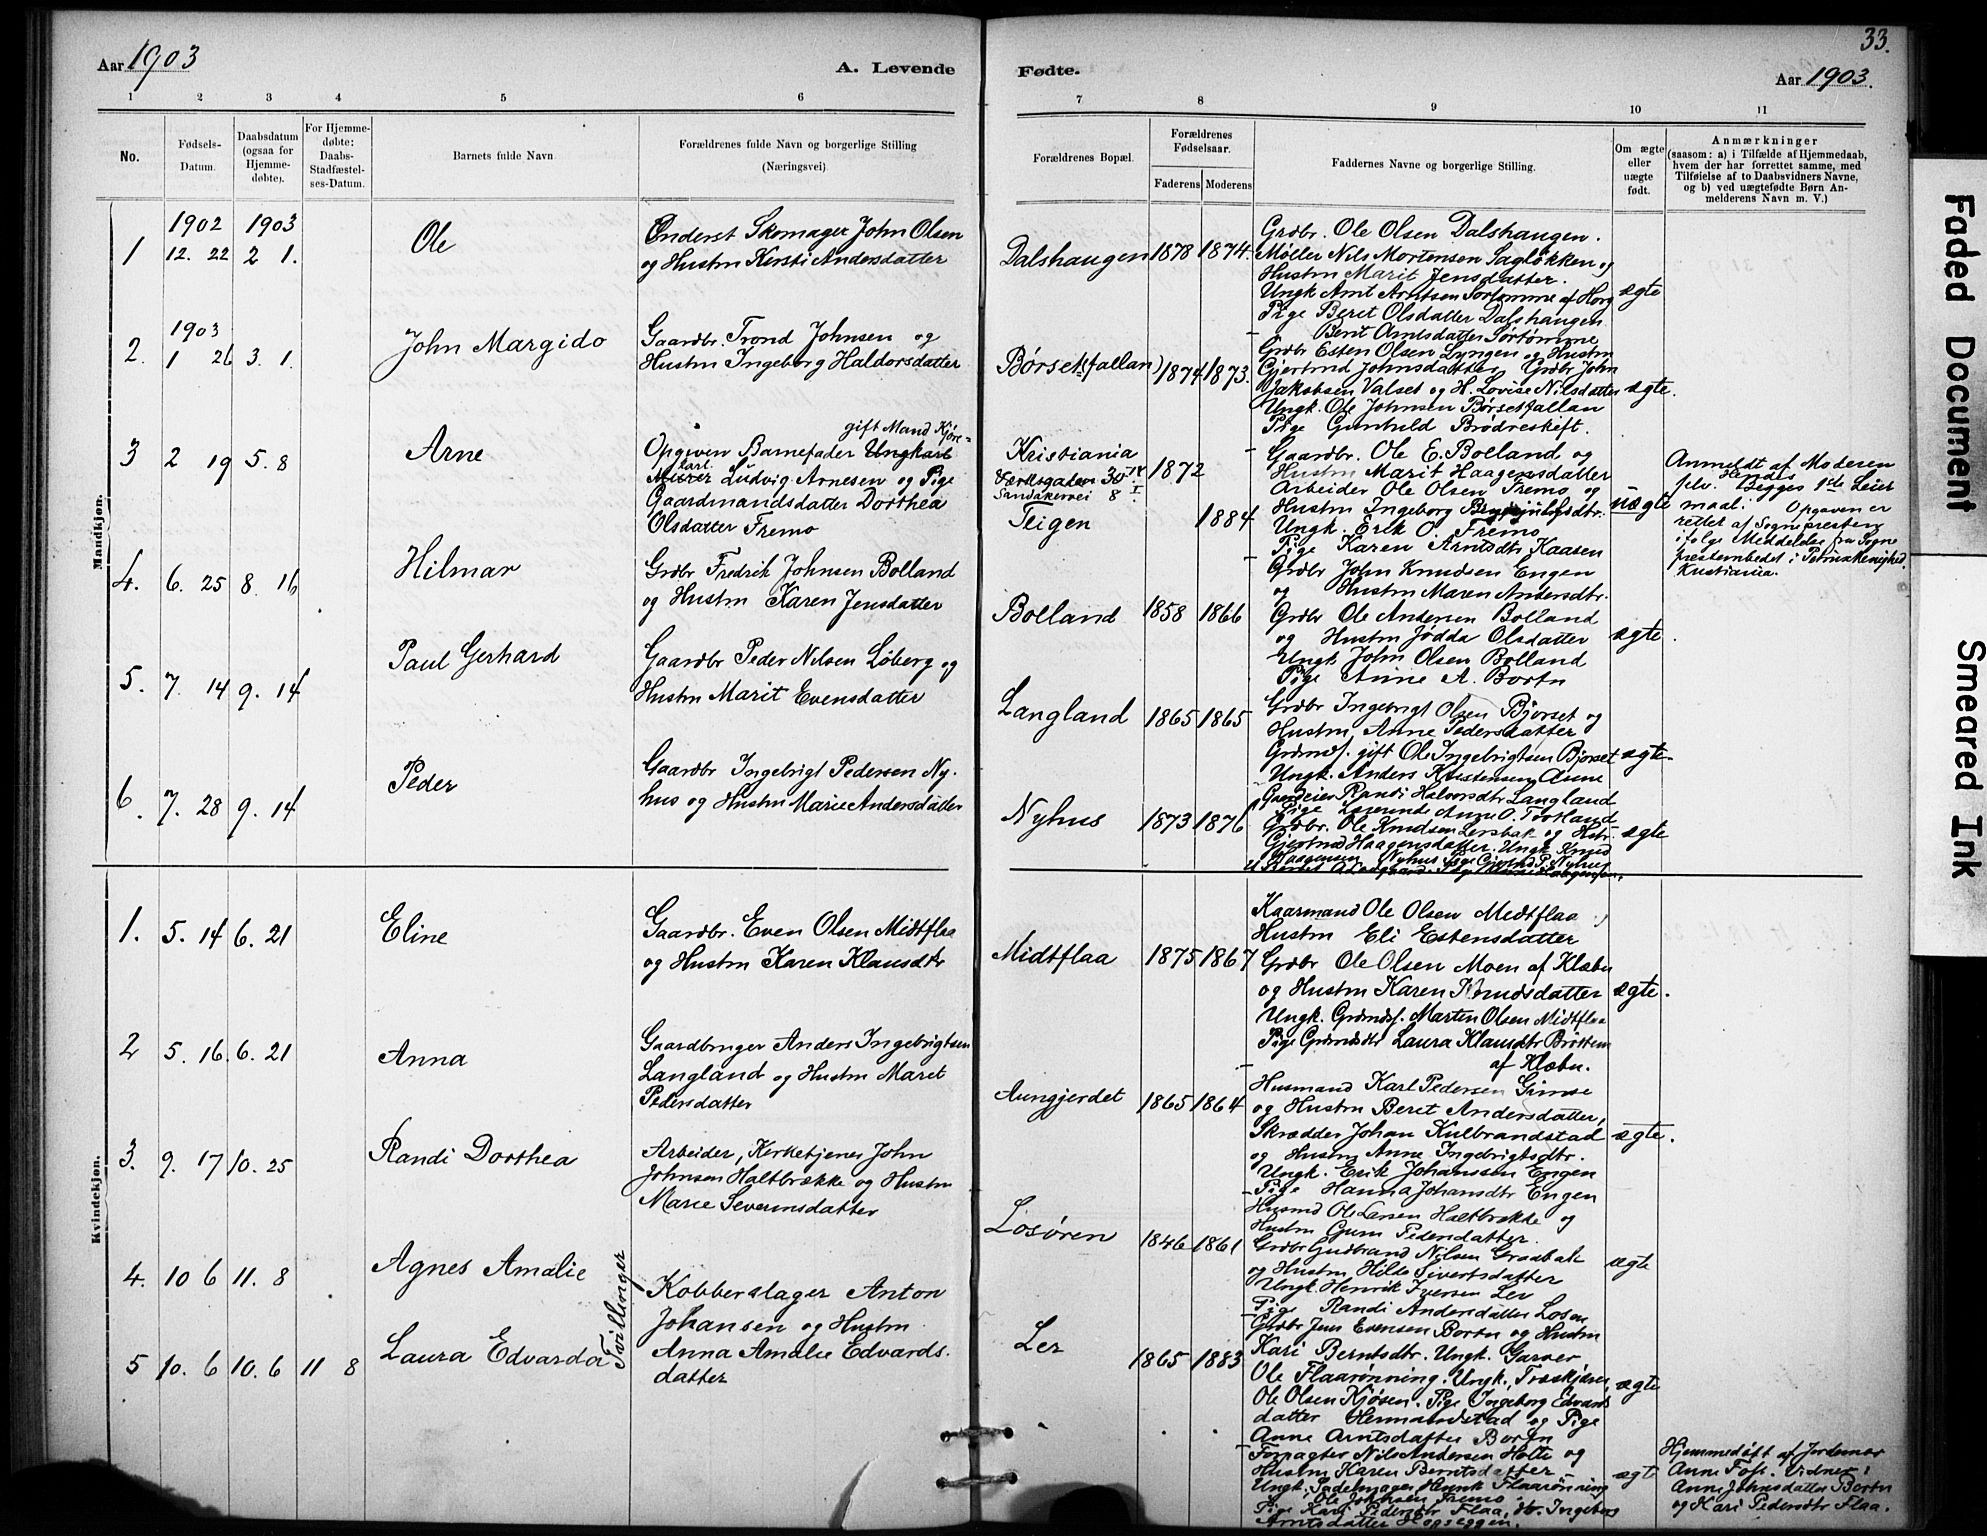 Aar 1903
A. Levende
Fødte.
33.
Aar 1903.
1 2 3 4 5 6 7 8 9 10 11
No.
Fødsels-
Datum.
Daabsdatum
(ogsaa for
Hjemme-
døbte).
For Hjemme-
døbte:
Daabs-
Stadfæstel-
ses-Datum.
Barnets fulde Navn
Forældrenes fulde Navn og borgerlige Stilling
(Næringsvei).
Forældrenes Bopæl.
Forældrenes
Fødselsaar.
Faderens Moderens
Faddernes Navne og borgerlige Stilling.
Om ægte
eller
uægte
født.
Anmærkninger
(saasom: a) i Tilfælde af Hjemmedaab,
hvem der har forrettet samme, med
Tilføielse af to Daabsvidners Navne,
og b) ved uægtefødte Børn An-
melderens Navn m. V.)
Mandkjøn.
1902 1903
1 12. 22 2 1. Ole
Inderst Skomager John Olsen
og Hustru Kersti Andersdatter
Dalshaugen 1878 1874.
Grdbr. Ole Olsen Dalshaugen.
Møller Nils Mortensen Sagløkken og
Hustru Marit Jensdatter.
Ungk Arnt Arntsen Sørtømme af Horg
Pige Beret Olsdatter Dalshaugen
Berit Arntsdatter Sørtømme
ægte
1903
2. 1 26 3. 1. John Margido
Gaardbr. Trond Johnsen og
Hustru Ingeborg Haldorsdatter
Børset(fallan) 1874 1873.
Grdbr Esten Olsen Lyngen og Hustru
Gjertrud Johnsdatter Grdbr John
Jakobsen Valset og H. Lovise Nilsdatter
Ungk. Ole Johnsen Børsetfallan
Pige Gunhild Brødreskift.
ægte.
3 2 19 5. 8 Arne
gift Mand Kjøre-
Opgiven Barnefader Ungkarl
Murer Ludvig Arnesen og Pige
Gaardmandsdatter Dorthea
Olsdatter Fremo
Kristiania
Sandakervei 8 I
Teigen
1872
1884
Gaardbr. Ole E. Bolland og
Hustru Marit Haagensdatter
Arbeider Ole Olsen Fremo og
Hustru Ingeborg
Ungk. Erik O. Fremo
Pige Karen Arntsdtr Kaasen
uægte
Anmeldt af Moderen
selv. Begges 1ste Leier
maal. Opgaven er
rettet af Sognepresten
ifølge Meddelelse fra Sogne
presteembedet i Petrus menighed,
Kristiania.
4. 6. 25 8 16 Hilmar
Grdbr Fredrik Johnsen Bolland
og Hustru Karen Jensdatter
Bolland 1858 1866
Grdbr John Knudsen Engen
og Hustru Maren Andersdtr.
Grdbr Ole Andersen Bolland
og Hustru Jødda Olsdatter
Ungk John Olsen Bolland
Pige Anne A. Bortn
ægte.
5. 7. 14 9. 14 Paul Gerhard
Gaardbr Peder Nilsen Løberg og
Hustru Marit Evensdatter
Langland 1865 1865
Grdbr Ingebrigt Olsen Bjørset og
Hustru, Anne Pedersdatter
Grdmds. gift Ole Ingebrigtsen Bjørset
Ungk. Anders Kristensen Aune
Randi Halvorsdtr Langland
ægte.
6. 7. 28 9. 14 Peder
Gaardbr Ingebrigt Pedersen Ny-
hus og Hustru Marie Andersdatter
Nyhus 1873 1876
Grdbr. Ole Knudsen Lersbak og Hstr.
Gjertrud Haagensdatter. Ungk Knud
Haagensen Nyhus Pige Gjertrud P. Nyhus
ægte
Kvindekjøn.
1. 5. 14 6. 21 Eline
Gaardbr. Even Olsen Midtflaa
og Hustru Karen Klausdtr
Midtflaa 1875 1867
Kaarmand Ole Olsen Midtflaa
Hustru Eli Estensdatter
Grdbr Ole Olsen Moen af Klæbu
og Hustru Karen Knudsdatter
Ungk. Grdmds. Martin Olsen Midtflaa
Pige Grdmdsdtr Laura Klausdtr Brøttem
af Klæbu.
ægte.
2 5. 16. 6. 21 Anna
Gaardbruger Anders Ingebrigtsen
Langland og Hustru Maret
Pedersdatter
Aungjerdet 1865 1864
Husmand Karl Pedersen Gimse
og Hustru Beret Andersdatter,
Skrædder Johan Kulbrandstad
og Hustru Anne Ingebrigtsdtr.
Ungk. Erik Johanssen Engen
Pige Hanna Johansdtr Engen
ægte.
3. 9. 17 10. 25 Randi Dorthea
Arbeider, Kirketjener John
Johnsen Haltbrække og Hustru
Marie Severinsdatter
Losøren 1846 1861
Husmd Ole Larsen Haltbrække og
Hustru Guru Pedersdatter.
Grdbr Gudbrand Nilsen Graabak
og Hustru Hilda Sivertsdatter
Ungk Henrik Iversen Ler
Pige Randi Andersdatter Losen
ægte
4. 10 6 11. 8 Agnes Amalie
Tvillinger
Kobberslager Anton
Johansen og Hustru
Anna Amalie Edvards-
datter
Ler 1865 1883
Grdbr Jens Evensen Bortn og Hustru
Kari Berntsdtr. Ungk. Garver
Ole Flaarønning. Ungk., Træskjærer,
Ole Olsen Kjøsen. Pige Ingeborg Edvards
datter Hermanstad og Pige
Anne Arntsdatter Bortn
ægte
5 10. 6 10. 6 11 8 Laura Edvarda
Forpagter Nils Andersen Holte og
Hustru Karen Berntsdatter
Ungk. Sadelmager Henrik Flaarønning
Ole Johnsen Fremo
Pige Kari Pedersdtr Flaa, Ingeborg
Arntsdatter Hopseggen.
ægte
Hjemmedøbt af Jordemor
Anne Foss. Vidner:
Anne Johnsdatter Bortn
og Kari Pedersdtr Flaa.
Faded Document
Smeared Ink